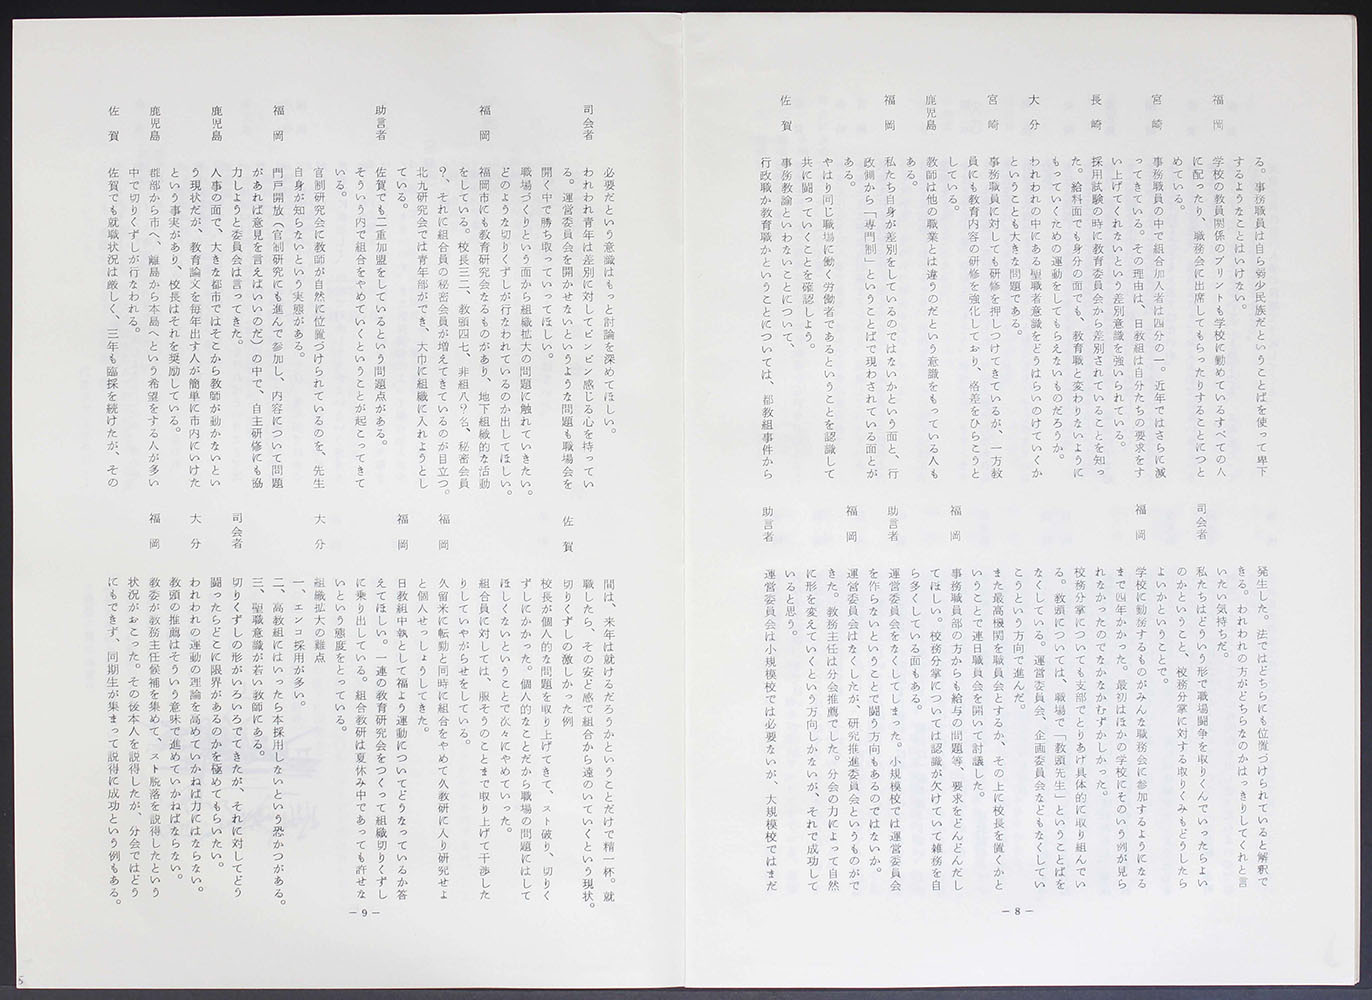 る。事務職員は自ら弱少民族だということばを使って卑下
するようなことはいけない。
福　岡　学校の教員関係のプリントも学校に勤めているすべての人
に配ったり、職務会に出席してもらったりすることにつと
めている。
宮　崎　事務職員の中で組合加入者は四分の一。近年ではさらに減
ってきている。その理由は、日教組は自分たちの要求をす
い上げてくれないという差別意識を強いられている。
長　崎　採用試験の時に教育委員会から差別されていることを知っ
た。給料面でも身分の面でも、教育職と変わりないように
もっていくための運動をしてもらえないものだろうか。
大　分　われわれの中にある聖職者意識をどうはらいのけていくか
ということも大きな問題である。
宮　崎　事務職員に対しても研修を押しつけてきているが、一方教
員にも教育内容の研修を強化しており、格差をひらこうと
している。
鹿児島　教師は他の職業とは違うのだという意識をもっている人も
ある。
福　岡　私たち自身が差別をしているのではないかという面と、行
政側から「専門制」ということばで現わされている面とが
ある。
やはり同じ職場に働く労働者であるということを認識して
共に闘っていくことを確認しよう。
事務教諭といわないことについて、
佐　賀　行政職か教育職かということについては、都教組事件から
発生した。法ではどちらにも位置づけられていると解釈で
きる。われわれの方がどちらなのかはっきりしてくれと言
いたい気持ちだ。
司会者　私たちはどういう形で職場闘争を取りくんでいったらよい
のかということ、校務分掌に対する取りくみもどうしたら
よいかということで。
福　岡　学校に勤務するものがみんな職務会に参加するようになる
まで四年かかった。最初はほかの学校にそのいう例が見ら
れなかったのでなかなかむずかしかった。
校務分掌についても支部でとりあげ具体的に取り組んでい
る。教頭については、職場で「教頭先生」ということばを
なくしている。運営委員会、企画委員会などもなくしてい
こうという方向で進んだ。
また最高機関を職員会とするか、その上に校長を置くかと
いうことで連日職員会を開いて討議した。
福　岡　事務職員部の方からも給与の問題等、要求をどんどんだし
てほしい。校務分掌については認識が欠けていて雑務を自
ら多くしている面もある。
助言者　運営委員会をなくしてしまった。小規模校では運営委員会
を作らないということで闘う方向もあるのではないか。
福　岡　運営委員会はなくしたが、研究推進委員会というものがで
きた。教務主任は分会推薦でした。分会の力によって自然
に形を変えていくという方向しかないが、それで成功して
いると思う。
助言者　運営委員会は小規模校では必要ないが、大規模校ではまだ
— 8 —
必要だという意識はもっと討論を深めてほしい。
司会者　われわれ青年は差別に対してビンビン感じる心を持ってい
る。運営委員会を開かせないというような問題も職場会を
開く中で勝ち取っていってほしい。
職場づくりという面から組織拡大の問題に触れていきたい。
どのような切りくずしが行なわれているのか出してほしい。
福　岡　福岡市にも教育研究会なるものがあり、地下組織的な活動
をしている。校長三三、教頭四七、非組八?名、秘密会員
?、それに組合員の秘密会員が増えてきているのが目立つ。
北九研究会では青年部ができ、大巾に組織に入れようとし
ている。
助言者　佐賀でも二重加盟をしているという問題点がある。
そういう内で組合をやめていくということが起こってきて
いる。
官制研究会に教師が自然に位置づけられているのを、先生
自身が知らないという実態がある。
福　岡　門戸開放（官制研究にも進んで参加し、内容について問題
があれば意見を言えばいいのだ）の中で、自主研修にも協
力しようと委員会は言ってきた。
鹿児島　人事の面で、大きな都市ではそこから教師が動かないとい
う現状だが、教育論文を毎年出す人が簡単に市内にいけた
という事実があり、校長はそれを奨励している。
鹿児島　郡部から市へ、離島から本島へという希望をする人が多い
中で切りくずしが行なわれる。
佐　賀　佐賀でも就職状況は厳しく、三年も臨採を続けたが、その
間は、来年は就けるだろうかということだけで精一杯。就
職したら、その安ど感で組合から遠のいていくという現状。
佐　賀　切りくずしの激しかった例
校長が個人的な問題を取り上げてきて、スト破り、切りく
ずしにかかった。個人的なことだから職場の問題にはして
ほしくないということで次々にやめていった。
組合員に対しては、服そうのことまで取り上げて干渉した
りしていやがらせをしている。
福　岡　久留米に転勤と同時に組合をやめて久教研に入り研究せよ
と個人せっしょうしてきた。
福　岡　日教組中執として福よう運動についてどうなっているか答
えてほしい。一連の教育研究会をつくって組織切りくずし
に乗り出している。組合教研は夏休み中であっても許せな
いという態度をとっている。
大　分　組織拡大の難点
一、エンコ採用が多い。
二、高教組にはいったら本採用しないという恐かつがある。
三、聖職意識が若い教師にある。
司会者　切りくずしの形がいろいろでてきたが、それに対してどう
闘ったらどこに限界があるのかを極めてもらいたい。
大　分　われわれの運動の理論を高めていかねば力にはならない。
教頭の推薦はそういう意味で進めていかねばならない。
福　岡　教委が教務主任候補を集めて、スト脱落を説得したという
状況がおこった。その後本人を説得したが、分会ではどう
にもできず、同期生が集まって説得に成功という例もある。
— 9 —
5